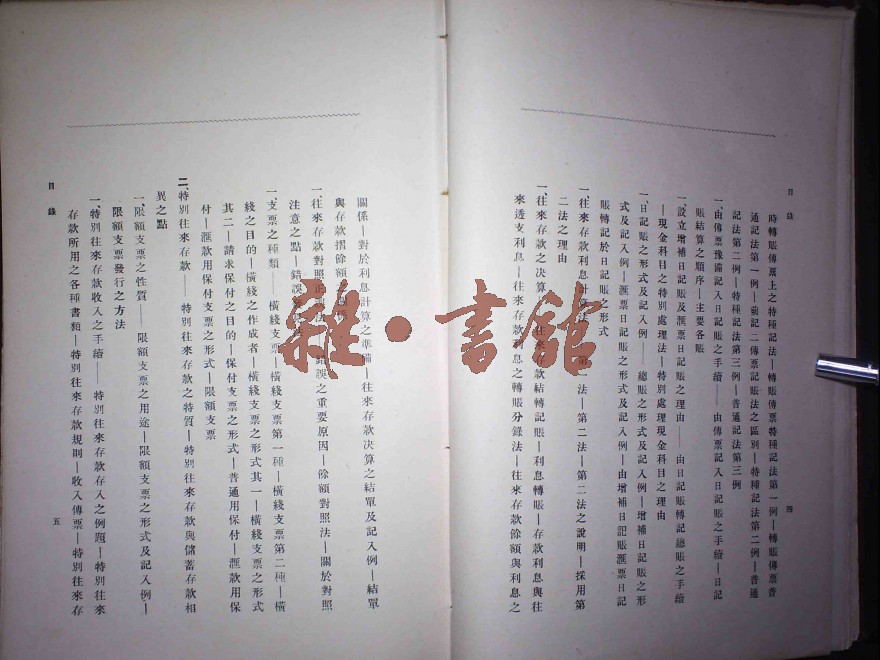 目錄
四
時轉賬傳票上之特種記法—轉賬傳票特種記法第一例—轉賬傳票普
通記法第一例—前記二傳票記賬法之區別—特種記法第二例—普通
記法第二例—特種記法第三例—普通記法第三例
一、由傳票豫備記入日記賬之手續——由傳票記入日記賬之手續—日記
賬結算之順序—主要各賬
一、設立增補日記賬及滙票日記賬之理由——由日記賬轉記總賬之手續
—現金科目之特別處理法—特別處理現金科目之理由
一、日記賬之形式及記入例——總賬之形式及記入例—增補日記賬之形
式及記入例—滙票日記賬之形式及記入例—由增補日記賬滙票日記
賬轉記於日記賬之形式
一、往來存款利息計算法 第一法—第二法—第二法之說明—採用第
二法之理由
一、往來存款之決算 往來存款結轉記賬—利息轉賬—存款利息與往
來透支利息—往來存款利息之轉賬分錄法—往來存款餘額與利息之
關係—對於利息計算之準備—往來存款決算之結單及記入例—結單
與存款摺餘額
一、往來存款對照 錯誤之重要原因—餘額對照法—關於對照
注意之點—錯誤
一、支票之種類——橫綫支票—橫綫支票第一種—橫綫支票第二種—橫
綫之目的—橫綫之作成者—橫綫支票之形式其一—橫綫支票之形式
其二—請求保付之目的—保付支票之形式—普通用保付—滙款用保
付—滙款用保付支票之形式—限額支票
二、特別往來存款——特別往來存款之特質—特別往來存款與儲蓄存款相
異之點
一、限額支票之性質——限額支票之用途—限額支票之形式及記入例—
限額支票發行之方法
一、特別往來存款收入之手續——特別往來存款存入之例題—特別往來
存款所用之各種書類—特別往來存款規則—收入傳票—特別往來存
目錄
五
雜·書館